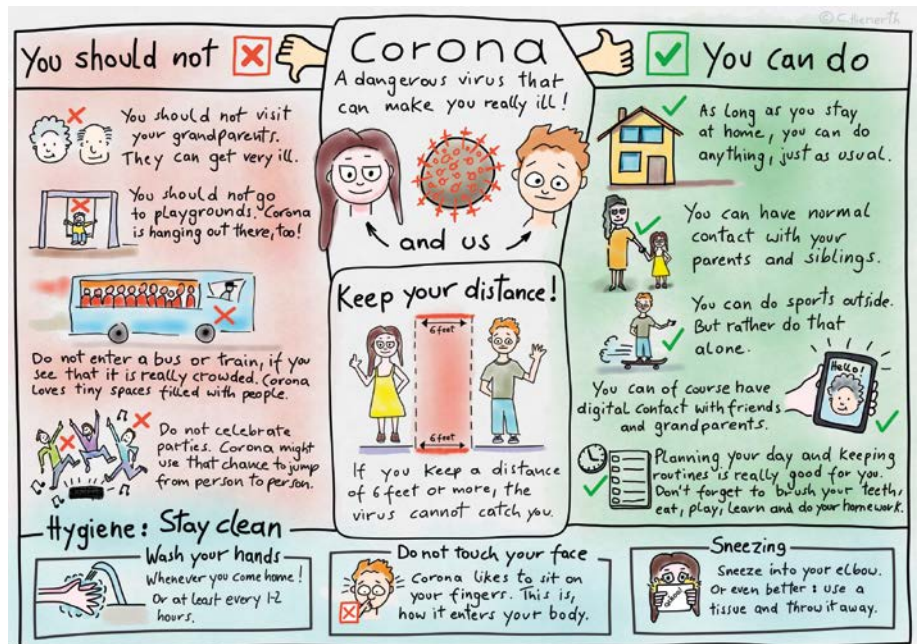 © C.Hienerth
You should not
Corona
A dangerous virus that
can make you really ill!
and us
You can do
You should not visit
your grandparents.
They can get very ill.
You should not go
to playgrounds. Corona
is hanging out there, too!
Do not enter a bus or train, if you
see that it is really crowded. Corona
loves tiny spaces filled with people.
Do not celebrate
parties. Corona might
use that chance to jump
from person to person.
Keep your distance!
6 feet
6 feet
If you keep a distance
of 6 feet or more, the
virus cannot catch you.
As long as you stay
at home, you can do
anything, just as usual.
You can have normal
contact with your
parents and siblings.
You can do sports outside.
But rather do that
alone.
Hello!
You can of course have
digital contact with friends
and grandparents.
Planning your day and keeping
routines is really good for you.
Don't forget to brush your teeth,
eat, play, learn and do your homework.
Hygiene: Stay clean
Wash your hands
Whenever you come home!
Or at least every 1-2
hours.
Do not touch your face
Corona likes to sit on
your fingers. This is,
how it enters your body.
Sneezing
Sneeze into your elbow.
Or even better: use a
tissue and throw it away.